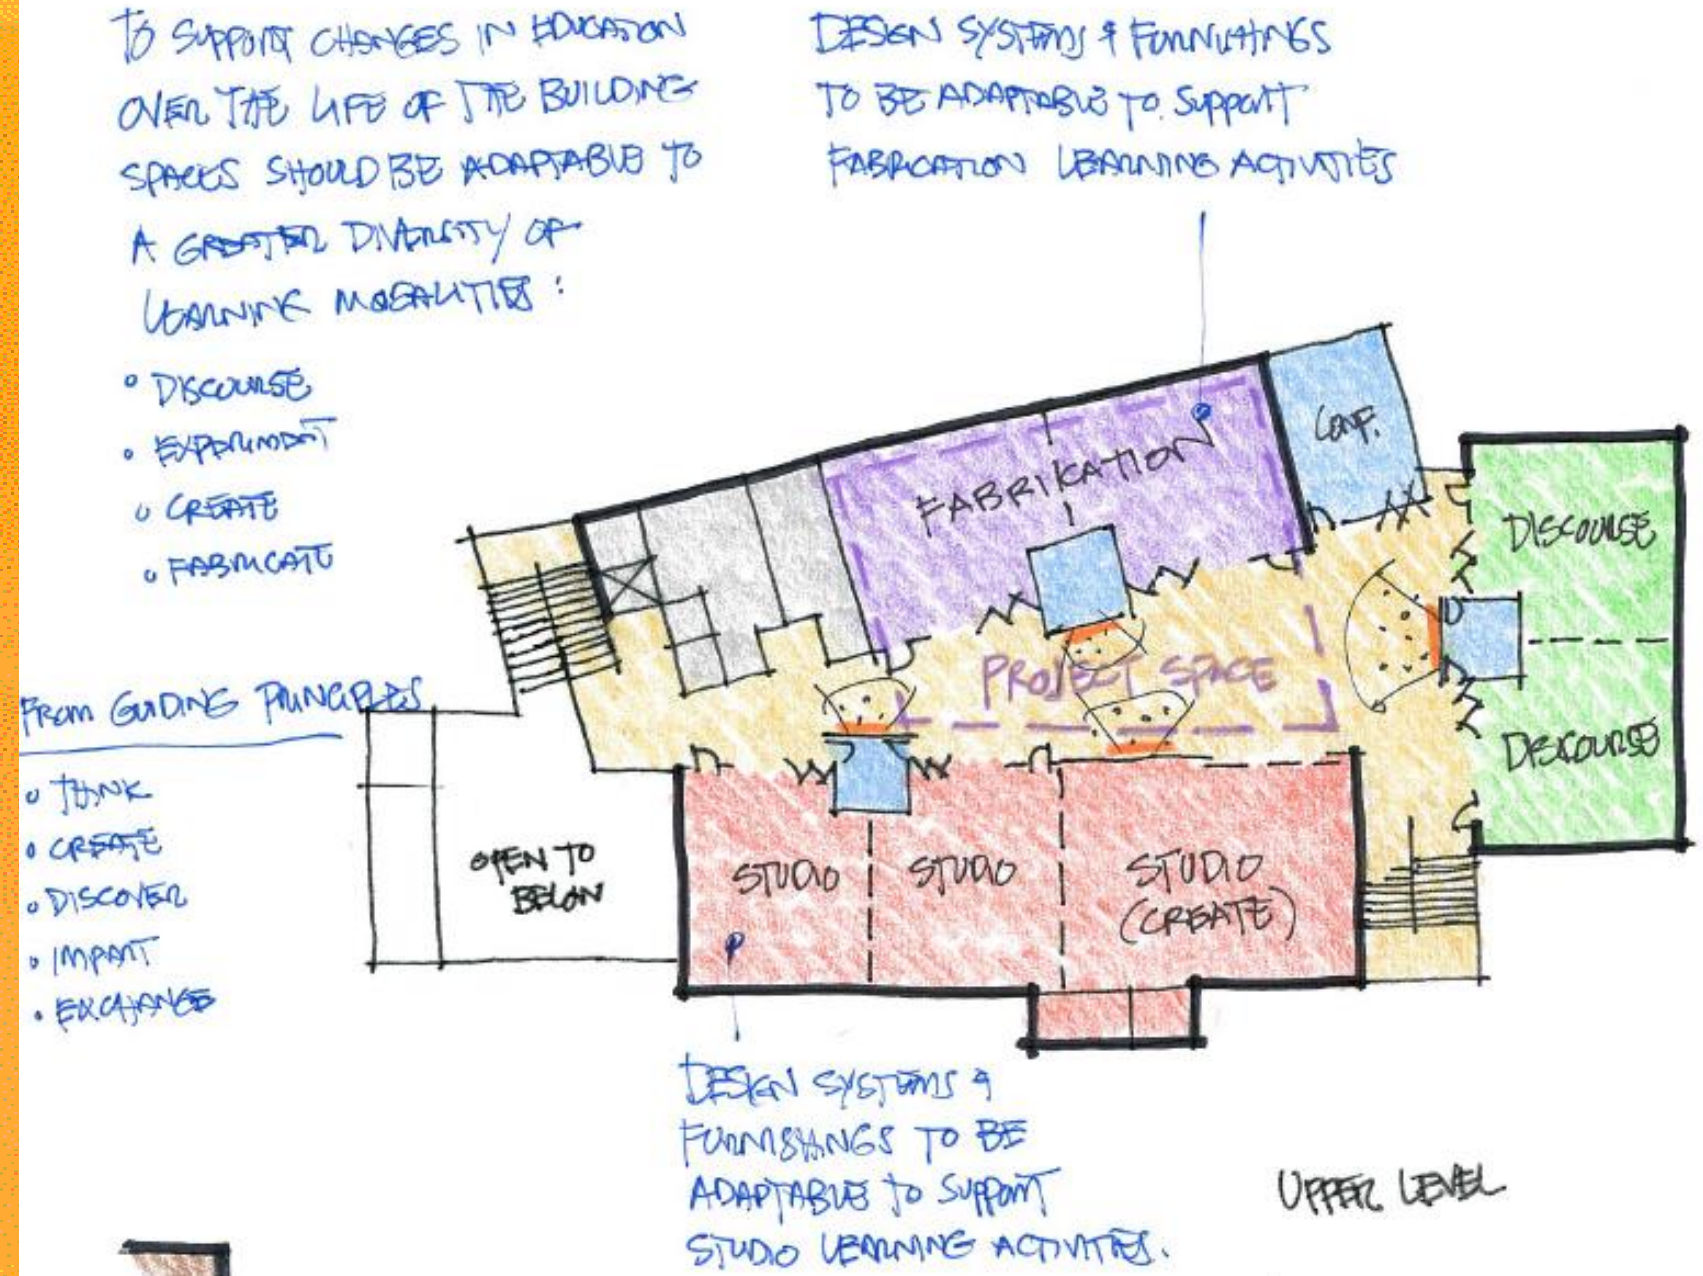 TO SUPPORT CHANGES IN EDUCATION
OVER THE LIFE OF THE BUILDING
SPACES SHOULD BE ADAPTABLE TO
A GREATER DIVERSITY OF
LEARNING MODALITIES:
• DISCOURSE
• EXPERIMENT
• CREATE
• FABRICATE
DESIGN SYSTEMS & FURNISHINGS
TO BE ADAPTABLE TO SUPPORT
FABRICATION LEARNING ACTIVITIES
FROM GUIDING PRINCIPLES
• THINK
• CREATE
• DISCOVER
• IMPART
• EXCHANGE
CONF.
FABRIKATION
DISCOURSE
PROJECT SPACE
DISCOURSE
OPEN TO
BELOW
STUDIO
STUDIO
STUDIO
(CREATE)
DESIGN SYSTEMS &
FURNISHINGS TO BE
ADAPTABLE TO SUPPORT
STUDIO LEARNING ACTIVITIES.
UPPER LEVEL